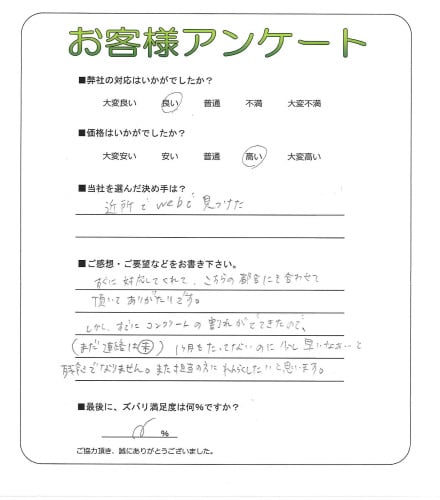 お客様アンケート
■弊社の対応はいかがでしたか?
大変良い 良い 普通 不満 大変不満
■価格はいかがでしたか?
大変安い 安い 普通 高い 大変高い
■当社を選んだ決め手は?
近所でwebで見つけた
■ご感想・ご要望などをお書き下さい。
すぐに対応してくれて、こちらの都合にも合わせて
頂いてありがたいです。
しかし、すでにコンクリートの割れがでてきたので、
(まだ連絡は㊍) 1ヶ月もたってないのに少し早いなぁ〜と
残念でなりません。また担当の方にれんらくしたいと思います。
■最後に、ズバリ満足度は何%ですか?
%
ご協力頂き、誠にありがとうございました。